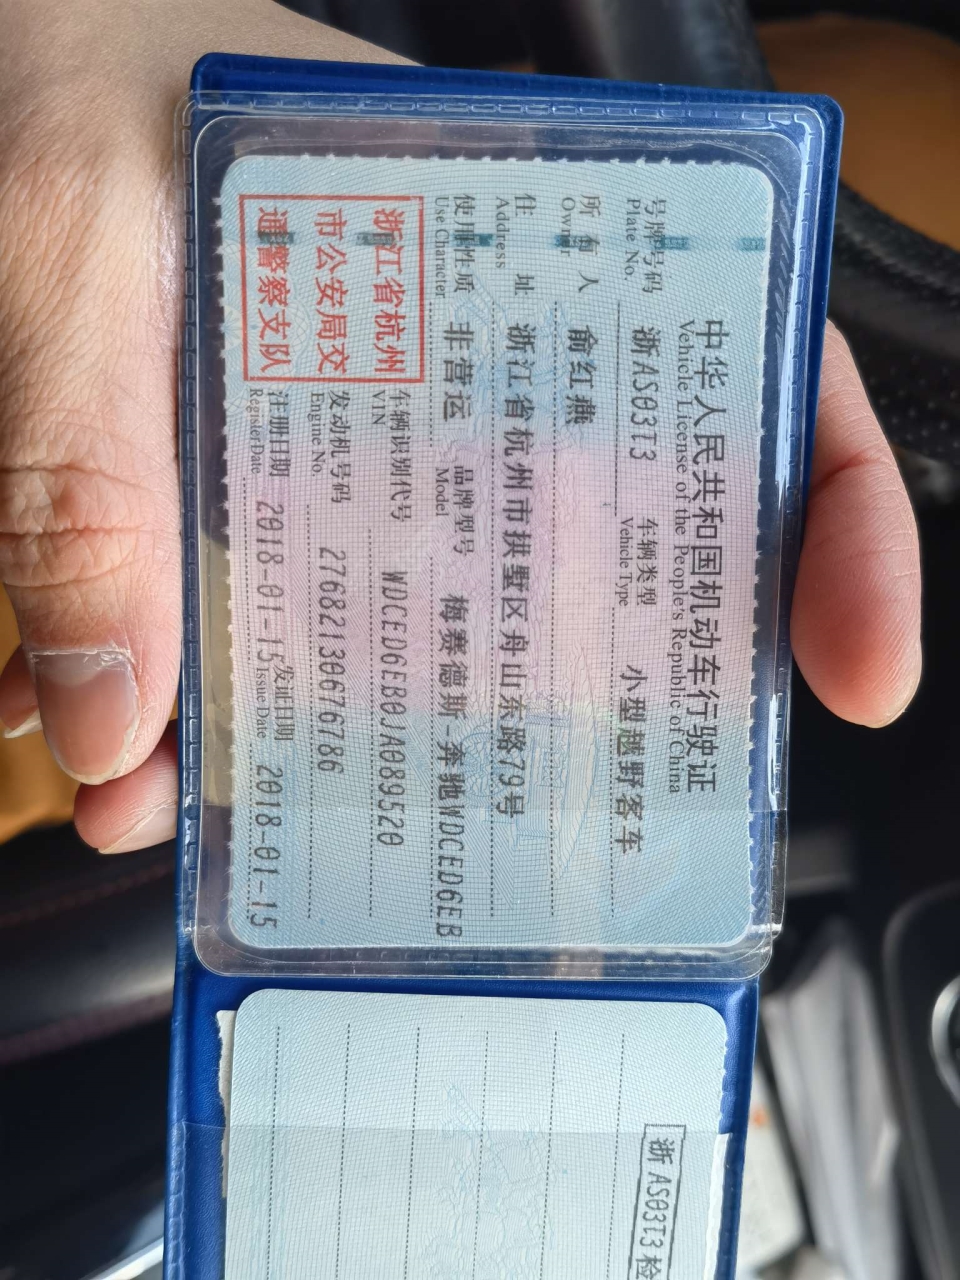 中华人民共和国机动车行驶证
Vehicle License of the People's Republic of China
号牌号码 浙AS03T3 车辆类型 小型越野客车
Plate No. Vehicle Type
所有人 俞红燕
Owner
住址 浙江省杭州市拱墅区舟山东路79号
Address
使用性质 非营运 品牌型号 梅赛德斯-奔驰WDCED6EB
Use Character Model
浙江省杭州
市公安局交
通警察支队
车辆识别代号 WDCED6EB0JA089520
VIN
发动机号码 27682130676786
Engine No.
注册日期 2018-01-15 发证日期 2018-01-15
Register Date Issue Date
浙AS03T3 检